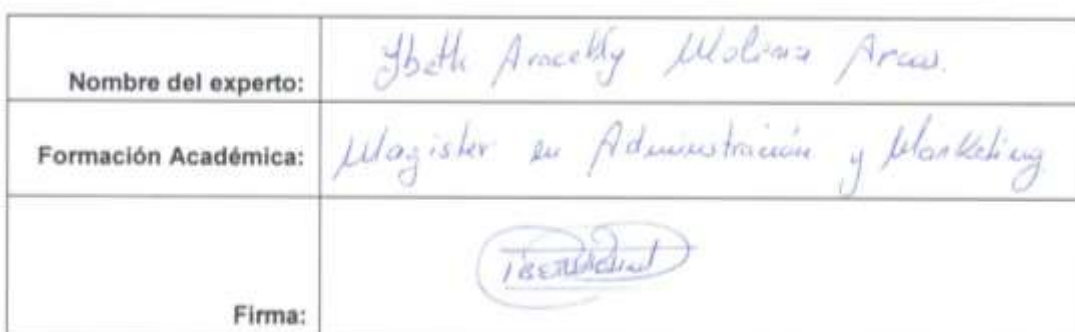 Nombre del experto: Ybeth Aracelly Molina Arcos.
Formación Académica: Magister en Administración y Marketing
Firma: